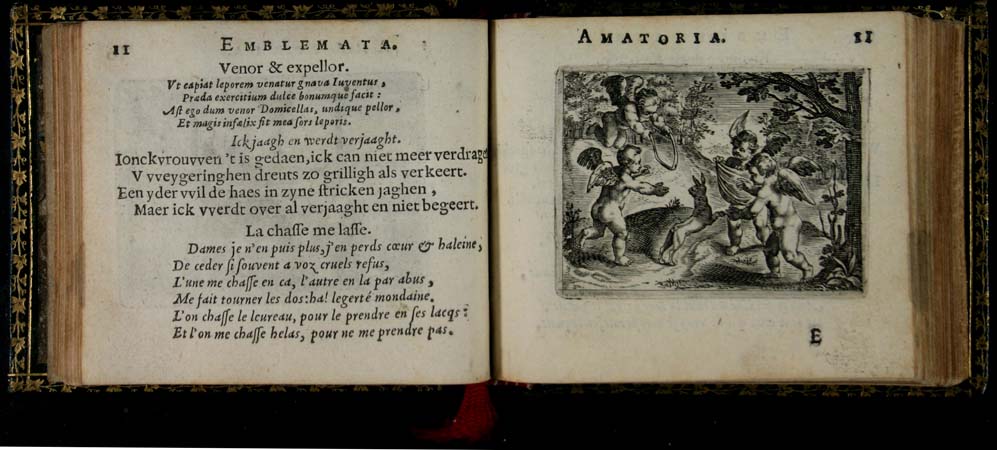 11
EMBLEMATA.
Venor & expellor.
Vt capiat leporem venatur gnava Iuventus,
Præda exercitium dulce bonumque facit:
Ast ego dum venor Domicellas, undique pellor,
Et magis infælix fit mea sors leporis.
Ick jaagh en werdt verjaaght.
Ionckvrouvven 't is gedaen, ick can niet meer verdrage
V vveygeringhen dreuts zo grilligh als verkeert.
Een yder vvil de haes in zyne stricken jaghen,
Maer ick vverdt over al verjaaght en niet begeert.
La chasse me lasse.
Dames je n'en puis plus, j'en perds cœur & haleine,
De ceder si souvent a voz cruels refus,
L'une me chasse en ca, l'autre en la par abus,
Me fait tourner les dos: ha! legerté mondaine.
L'on chasse le leureau, pour le prendre en ses lacqs:
Et l'on me chasse helas, pour ne me prendre pas.
AMATORIA.
11
E